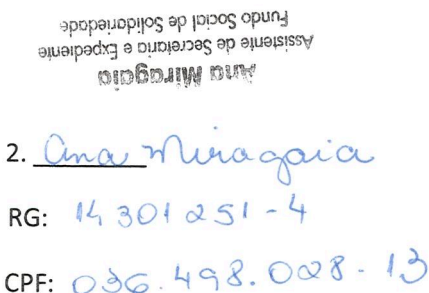 Ana Miragaia
Assistente de Secretaria e Expediente
Fundo Social de Solidariedade
2. Ana Miragaia
RG: 14 301 251-4
CPF: 036.498.028-13